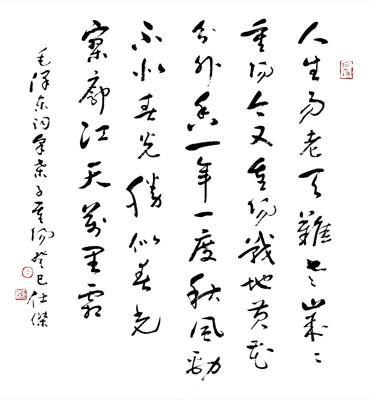 人生易老天難老歲〻
重陽今又重陽戰地黃花
分外香一年一度秋風勁
不似春光勝似春光
寥廓江天萬里霜
毛澤東詞采桑子重陽癸巳仕傑